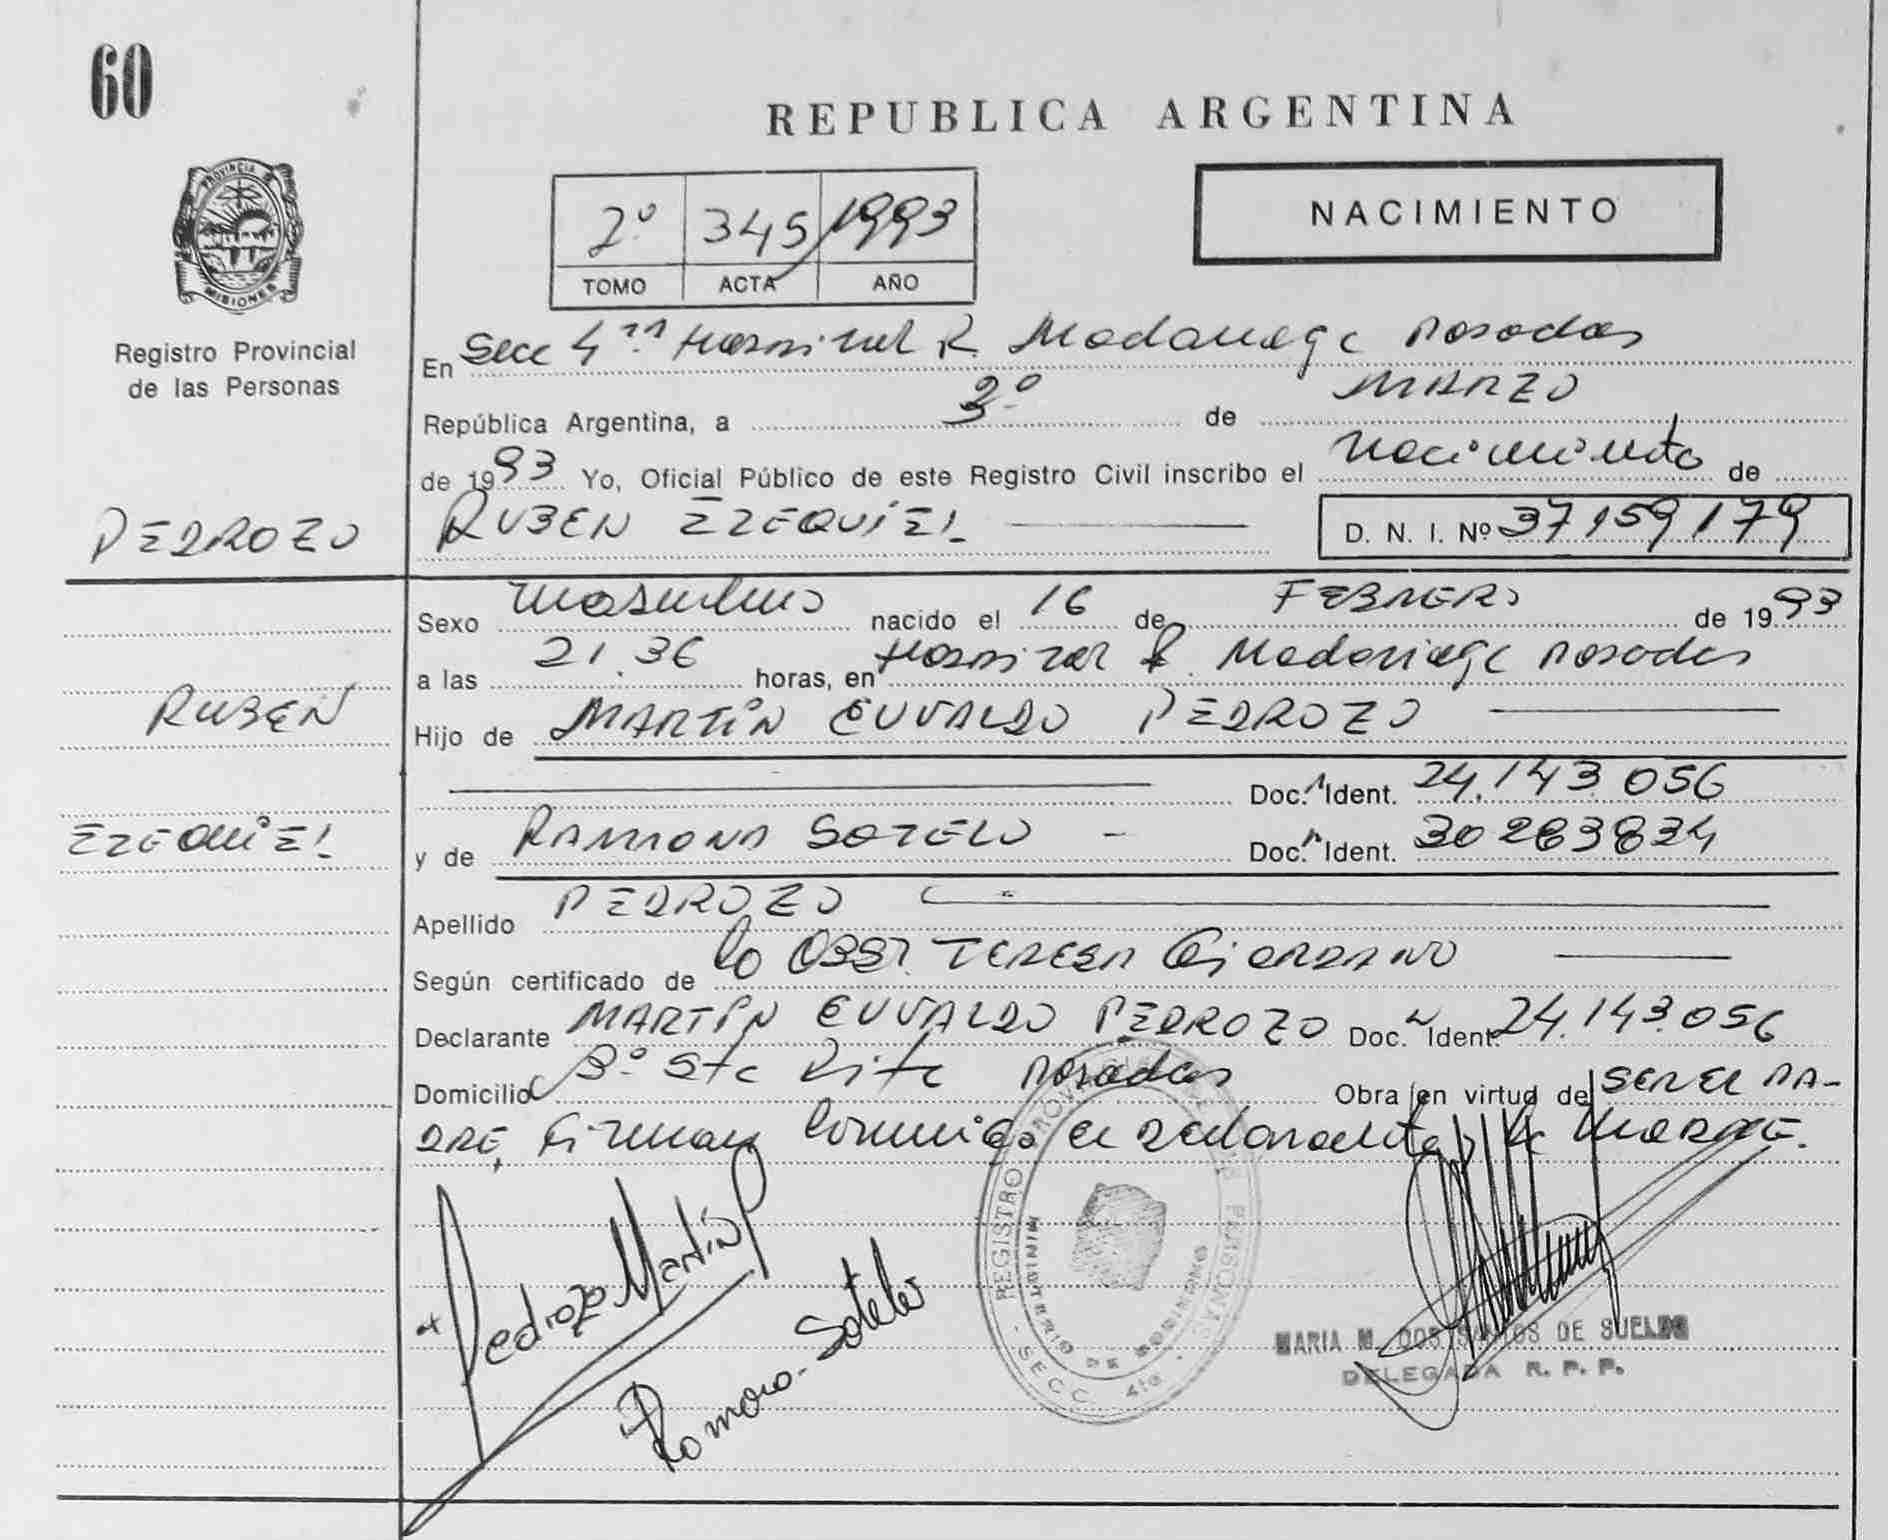 60
REPUBLICA ARGENTINA
PROVINCIA
MISIONES
Registro Provincial
de las Personas
2º 345 1993
TOMO ACTA AÑO
NACIMIENTO
En Secc 4ta Hospital R. Madariaga Posadas
República Argentina, a 3º de MARZO
de 1993 Yo, Oficial Público de este Registro Civil inscribo el Nacimiento de
PEDROZO
RUBEN EZEQUIEL
D. N. I. Nº 37159179
RUBEN
EZEQUIEL
Sexo masculino nacido el 16 de FEBRERO de 1993
a las 21.36 horas, en Hospital R. Madariaga Posadas
Hijo de MARTÍN EUVALDO PEDROZO
Doc. Ident. 24.143.056
y de RAMONA SOTELO - Doc. Ident. 30263834
Apellido PEDROZO
Según certificado de la OBST. TERESA GIORDANO
Declarante MARTÍN EUVALDO PEDROZO Doc. Ident. 24.143.056
Domicilio Bº Sta Rita Posadas Obra en virtud de SER EL PA-
DRE, Firman conmigo el declarante y la MADRE.
Pedrozo Martín
Ramona Sotelo
REGISTRO PROVINCIAL DE LAS PERSONAS
MINISTERIO DE GOBIERNO
SECC. 4ta
MARIA M. DOS SANTOS DE SUELDO
DELEGADA R. P. P.